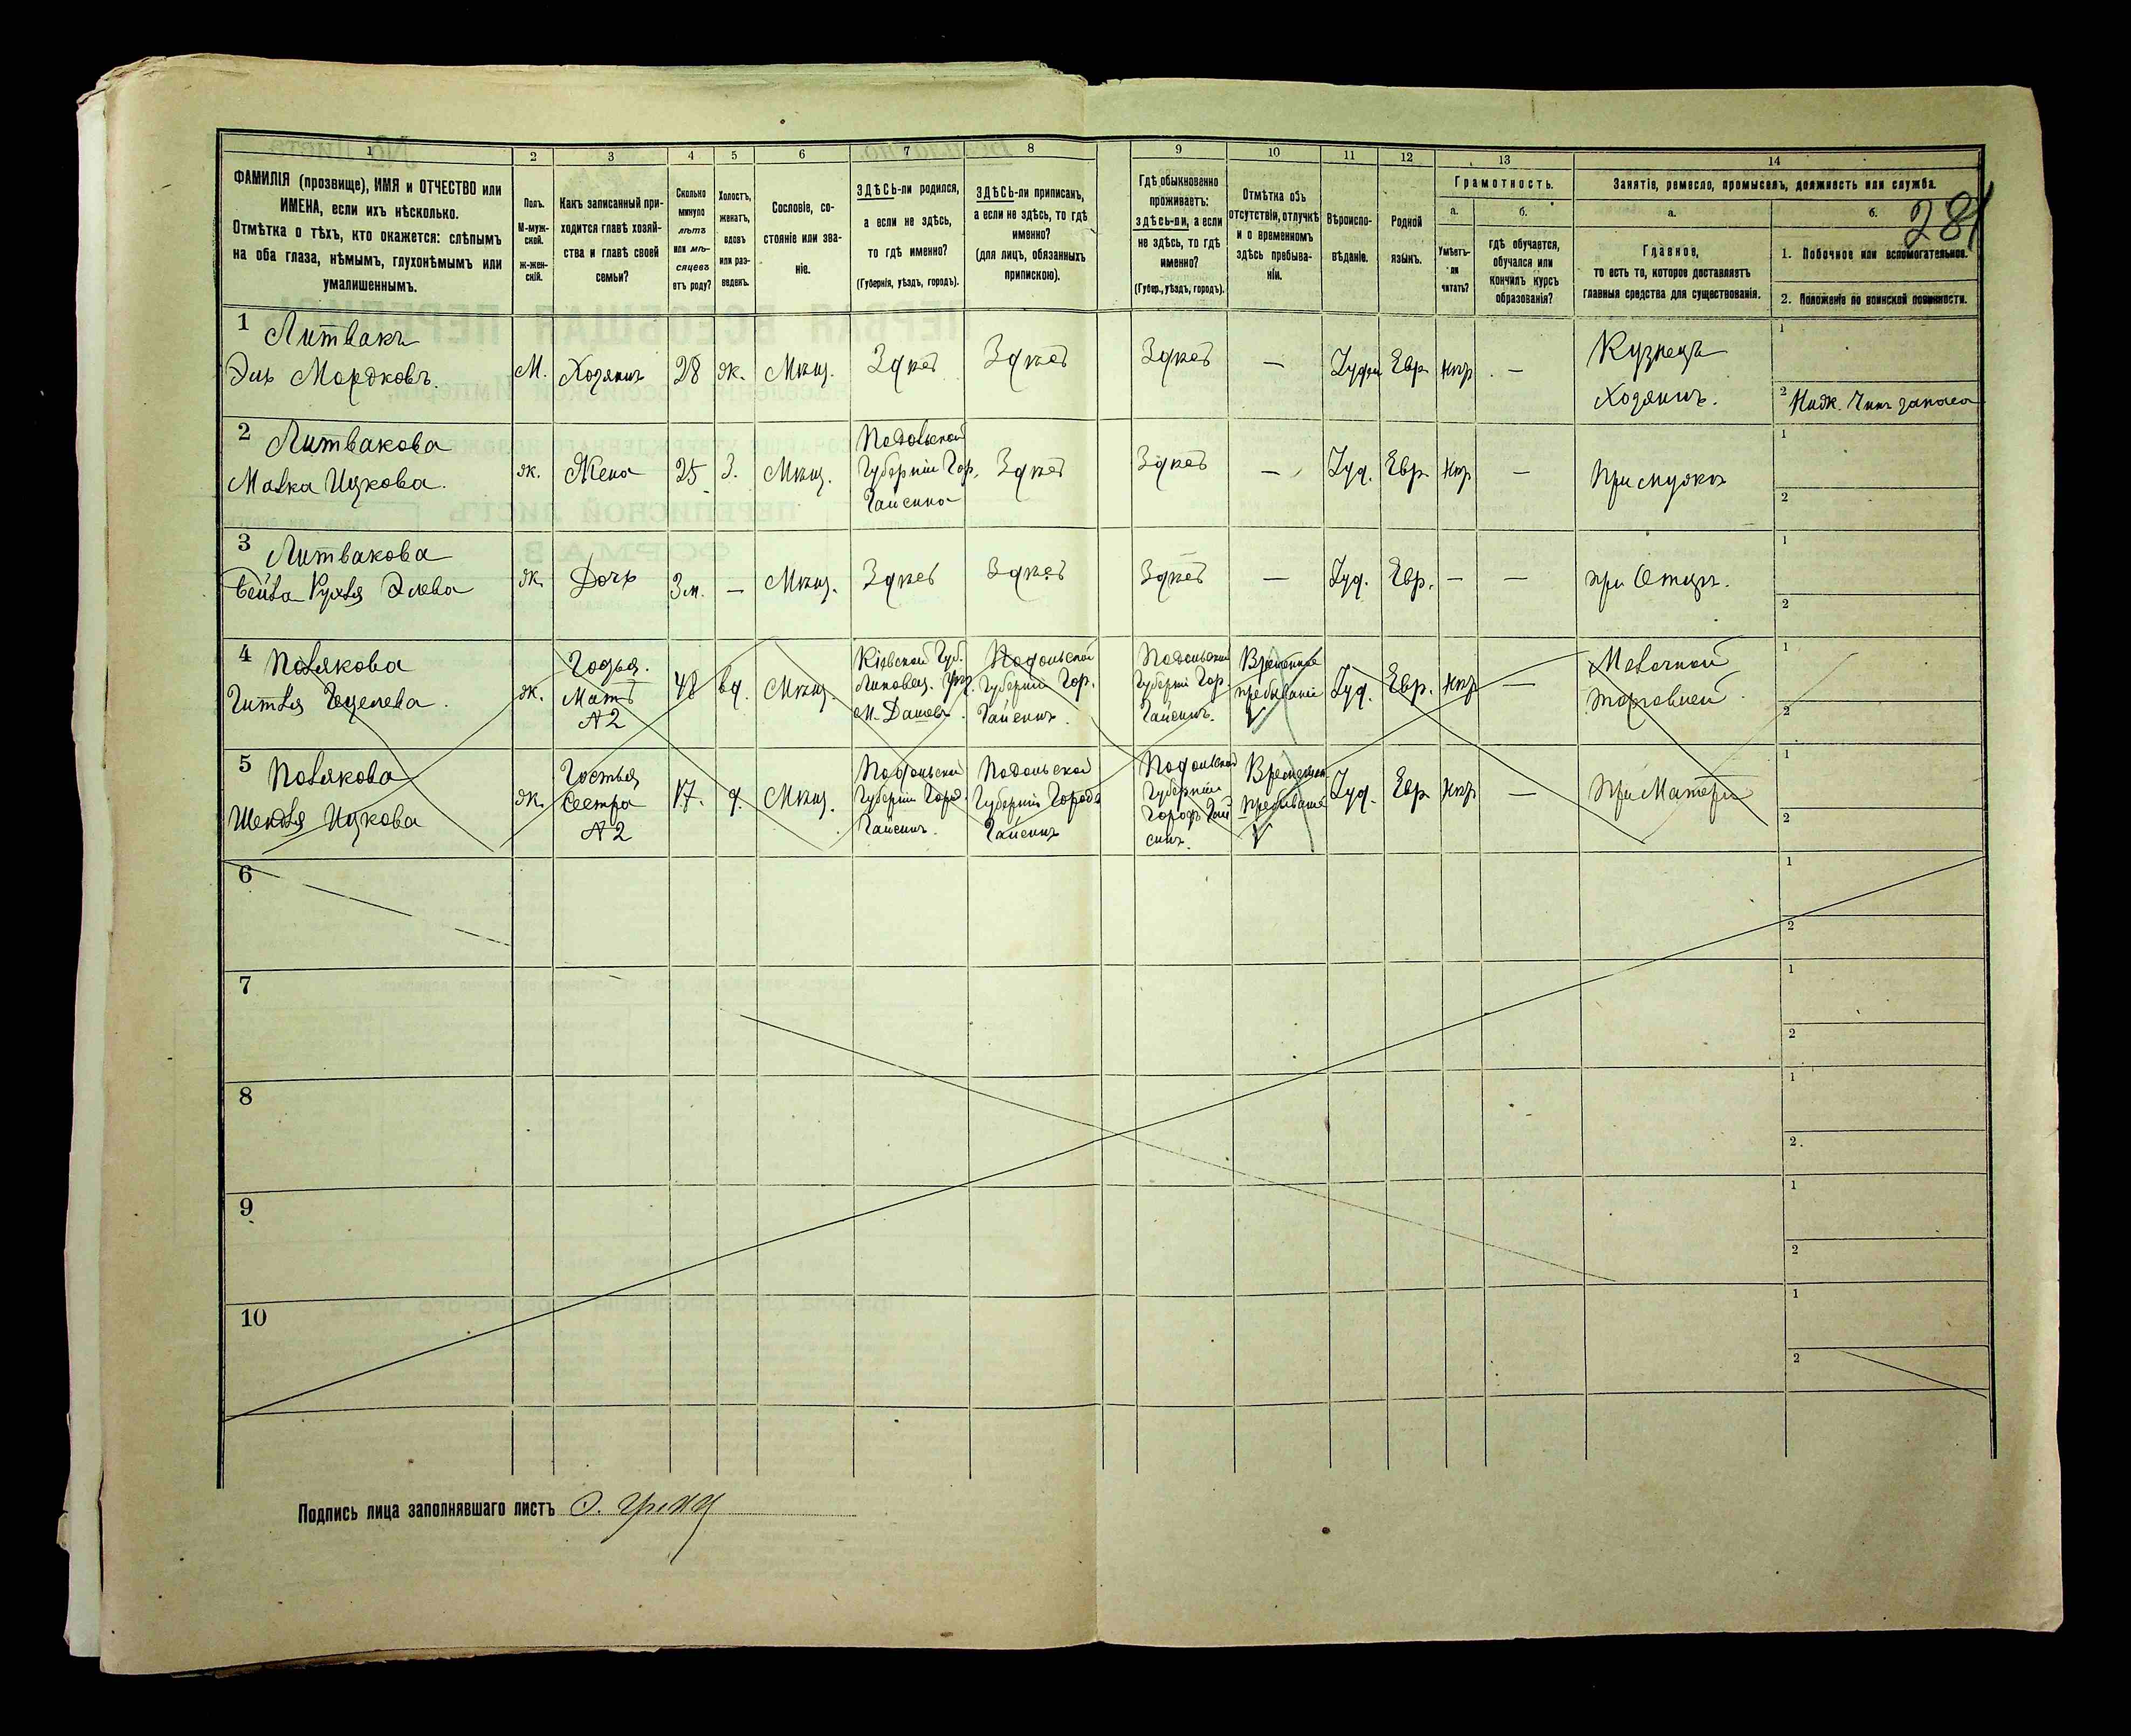 281
1 2 3 4 5 6 7 8 9 10 11 12 13 14
ФАМИЛІЯ (прозвище), ИМЯ и ОТЧЕСТВО или
ИМЕНА, если ихъ нѣсколько.
Отмѣтка о тѣхъ, кто окажется: слѣпымъ
на оба глаза, нѣмымъ, глухонѣмымъ или
умалишеннымъ.
Полъ.
М-муж-
ской.
Ж-жен-
скій.
Какъ записанный при-
ходится главѣ хозяй-
ства и главѣ своей
семьи?
Сколько
минуло
лѣтъ
или мѣ-
сяцевъ
отъ роду?
Холостъ,
женатъ,
вдовъ
или раз-
веденъ.
Сословіе, со-
стояніе или зва-
ніе.
ЗДѢСЬ-ли родился,
а если не здѣсь,
то гдѣ именно?
(Губернія, уѣздъ, городъ).
ЗДѢСЬ-ли приписанъ,
а если не здѣсь, то гдѣ
именно?
(для лицъ, обязанныхъ
припискою).
Гдѣ обыкновенно
проживаетъ:
здѣсь-ли, а если
не здѣсь, то гдѣ
именно?
(Губер., уѣздъ, городъ).
Отмѣтка объ
отсутствіи, отлучкѣ
и о временномъ
здѣсь пребыва-
ніи.
Вѣроиспо-
вѣданіе.
Родной
языкъ.
Грамотность.
а.
Умѣетъ-
ли
читать?
б.
гдѣ обучается,
обучался или
кончилъ курсъ
образованія?
Занятіе, ремесло, промыселъ, должность или служба.
а.
Главное,
то есть то, которое доставляетъ
главныя средства для существованія.
б.
1. Побочное или вспомогательное.
2. Положеніе по воинской повинности.
1 Литвакъ
Эль Мордковъ.
М.
Хозяинъ
28
ж.
Мѣщ.
Здѣсь
Здѣсь
Здѣсь
—
Іудей
Евр
нѣт
—
Кузнецъ
Хозяинъ.
1
2 Ниж. Чинъ запаса
2 Литвакова
Малка Ицкова.
ж.
Жена
25
З.
Мѣщ.
Подольской
Губерніи Гор.
Гайсина
Здѣсь
Здѣсь
—
Іуд.
Евр
нѣт
—
При мужѣ
1
2
3 Литвакова
Бейла Рухля Элева
ж.
Дочь
3 м.
—
Мѣщ.
Здѣсь
Здѣсь
Здѣсь
—
Іуд.
Евр.
—
—
при Отцѣ.
1
2
4 Полякова
Гитля
ж.
Мать
№ 2
48
вд.
Мѣщ.
Кіевской Губ.
Липовец. Уѣз.
М. Дашевъ.
Подольской
Губерніи Гор.
Гайсинъ.
Подольской
Губерніи Гор.
Гайсинъ.
Временное
пребываніе
V
Іуд.
Евр.
нѣт
—
Мелочной
торговлей.
1
2
5 Полякова
Шендля Ицкова
ж.
Гостья
Сестра
№ 2
17.
д.
Мѣщ.
Подольской
Губерніи Город
Гайсинъ.
Подольской
Губерніи Города
Гайсинъ
Подольской
Губерніи
Городъ Гай
синъ.
Временное
пребываніе
V
Іуд.
Евр
нѣт
—
При Матери
1
2
6
1
2
7
1
2
8
1
2.
9
1
2
10
1
2
Подпись лица заполнявшаго листъ